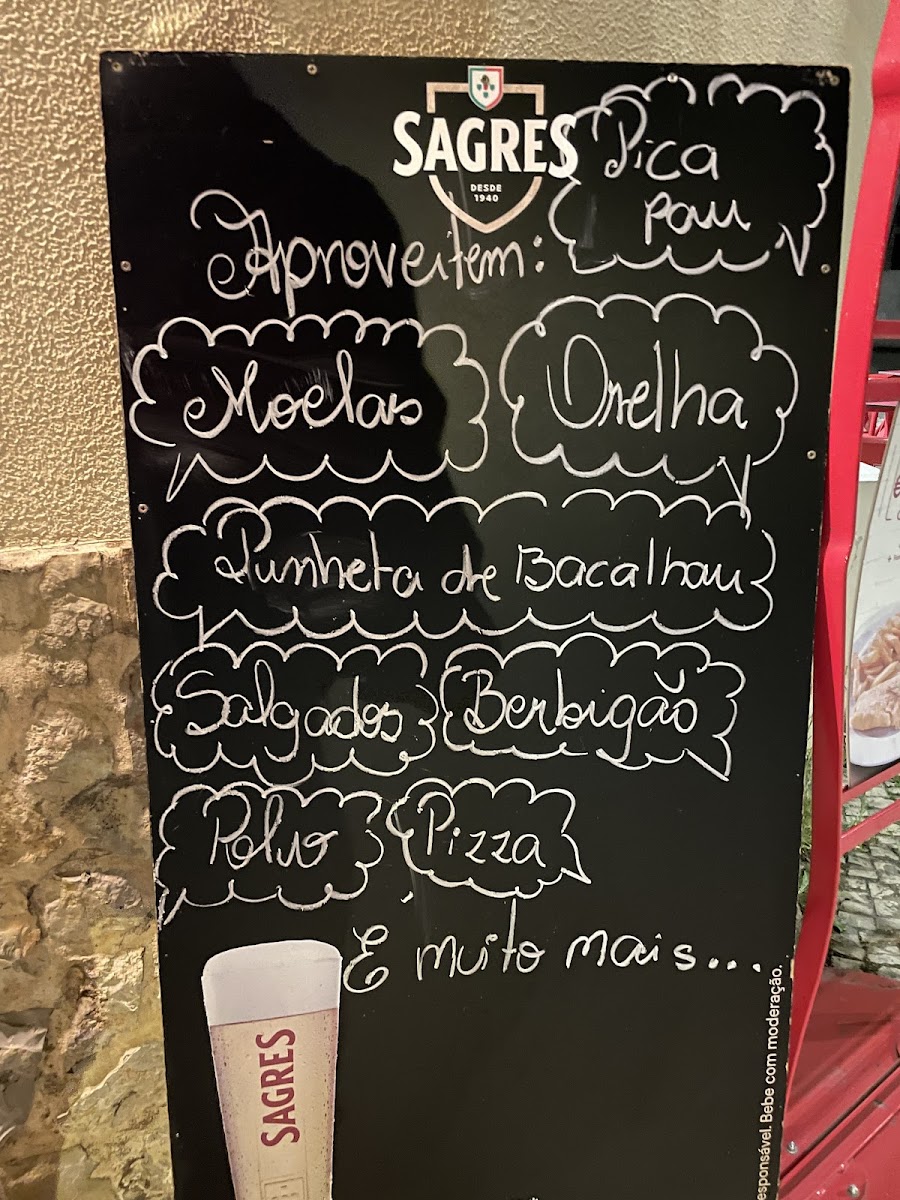 SAGRES
DESDE
1940
Pica
Pau
Aproveitem:
Moelas
Orelha
Punheta de Bacalhau
Salgados
Berbigão
Polvo
Pizza
E muito mais...
SAGRES
esponsável. Bebe com moderação.